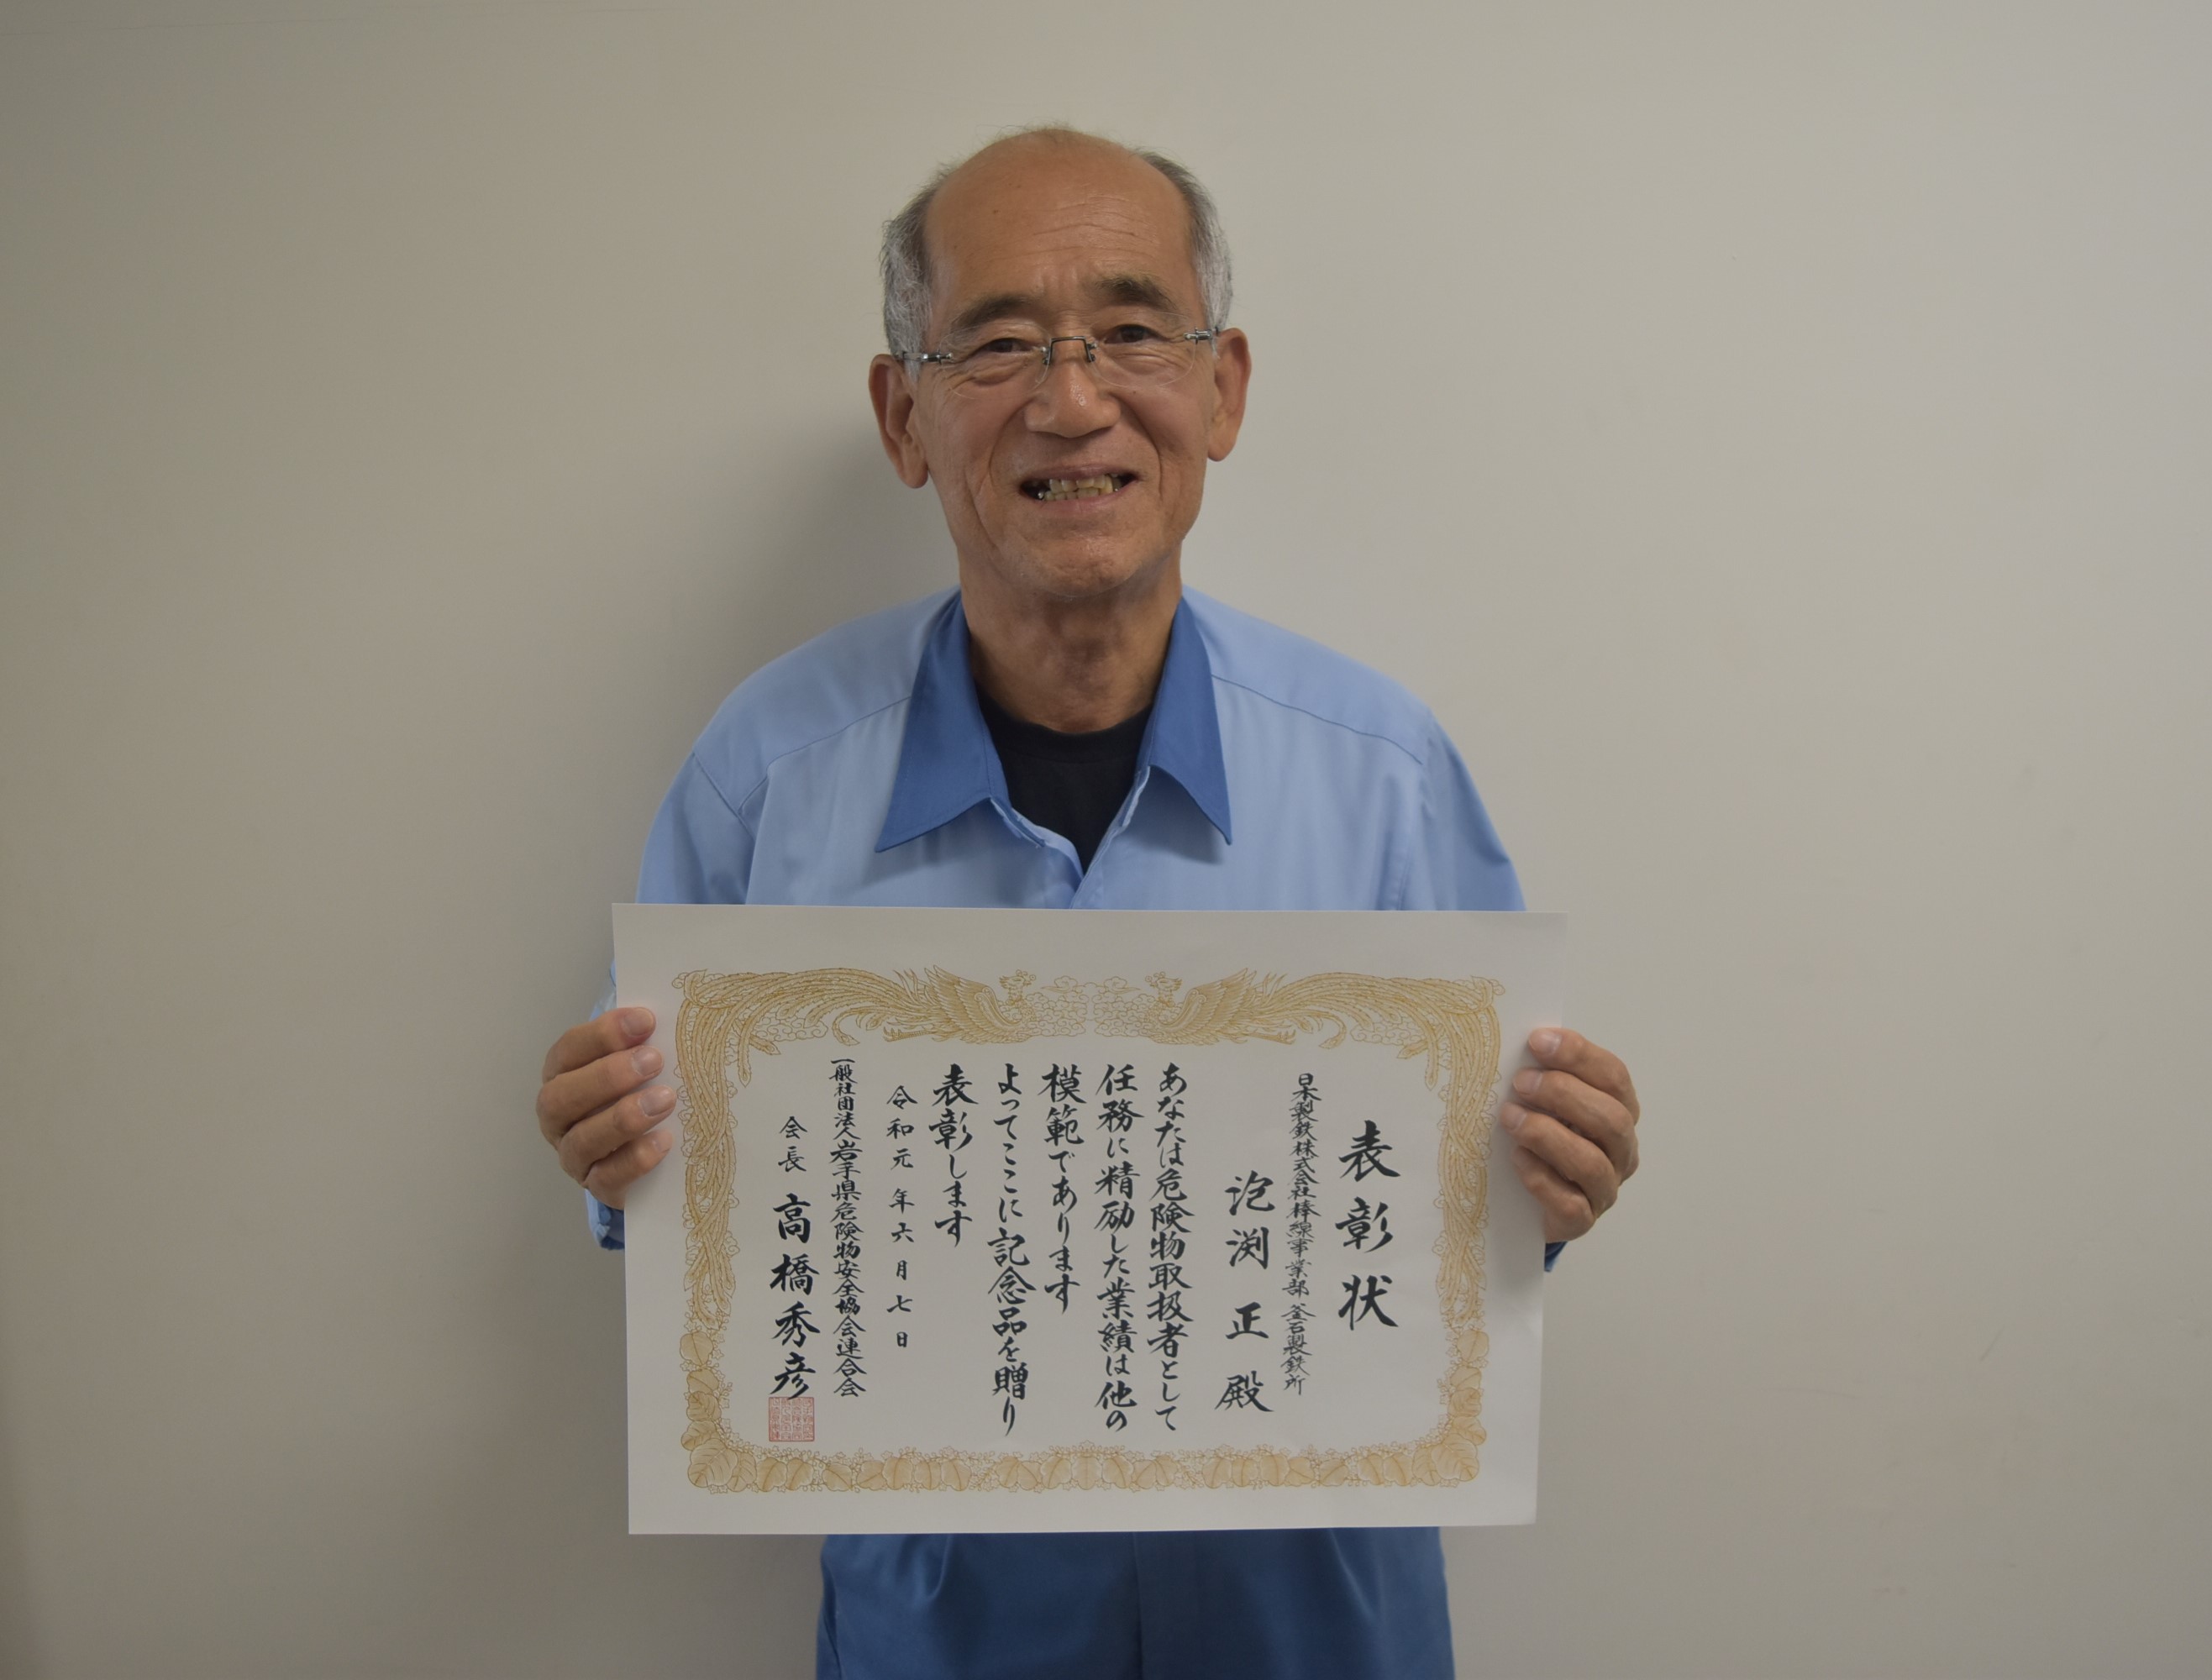 表彰状
日本製鉄株式会社棒線事業部 釜石製鉄所
泡渕 正 殿
あなたは危険物取扱者として
任務に精励した業績は他の
模範であります
よってここに記念品を贈り
表彰します
令和元年六月七日
一般社団法人岩手県危険物安全協会連合会
会長 高橋秀彦